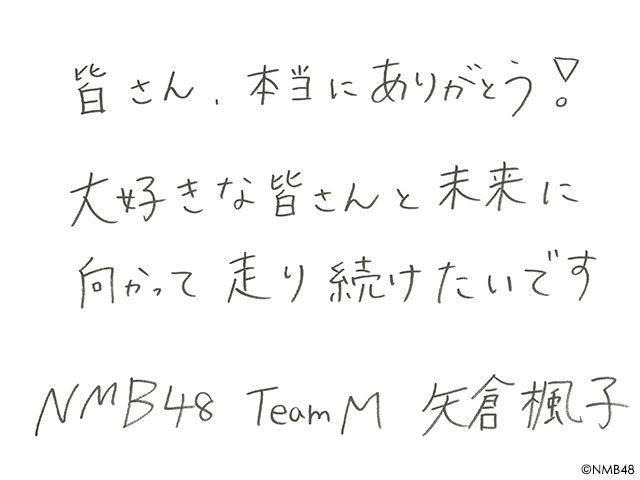 皆さん、本当にありがとう!
大好きな皆さんと未来に
向かって走り続けたいです
NMB48 Team M 矢倉楓子
©NMB48